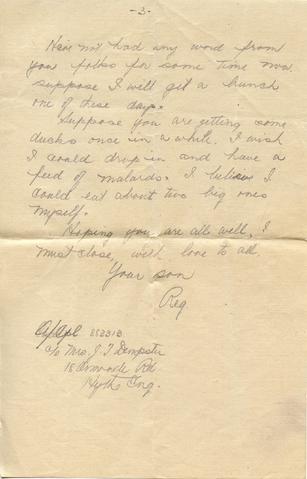 -3-
Have not had any word from
you folks for some time now.
suppose I will get a bunch
one of these days.
Suppose you are getting some
ducks once in a while. I wish
I could drop in and have a
feed of malards. I believe I
could eat about two big ones
myself.
Hoping you are all well, I
must close, with love to all.
Your son
Reg.
A/Cpl
c/o Mrs. J. T. Dempster
18 Rd.
Hythe Eng.